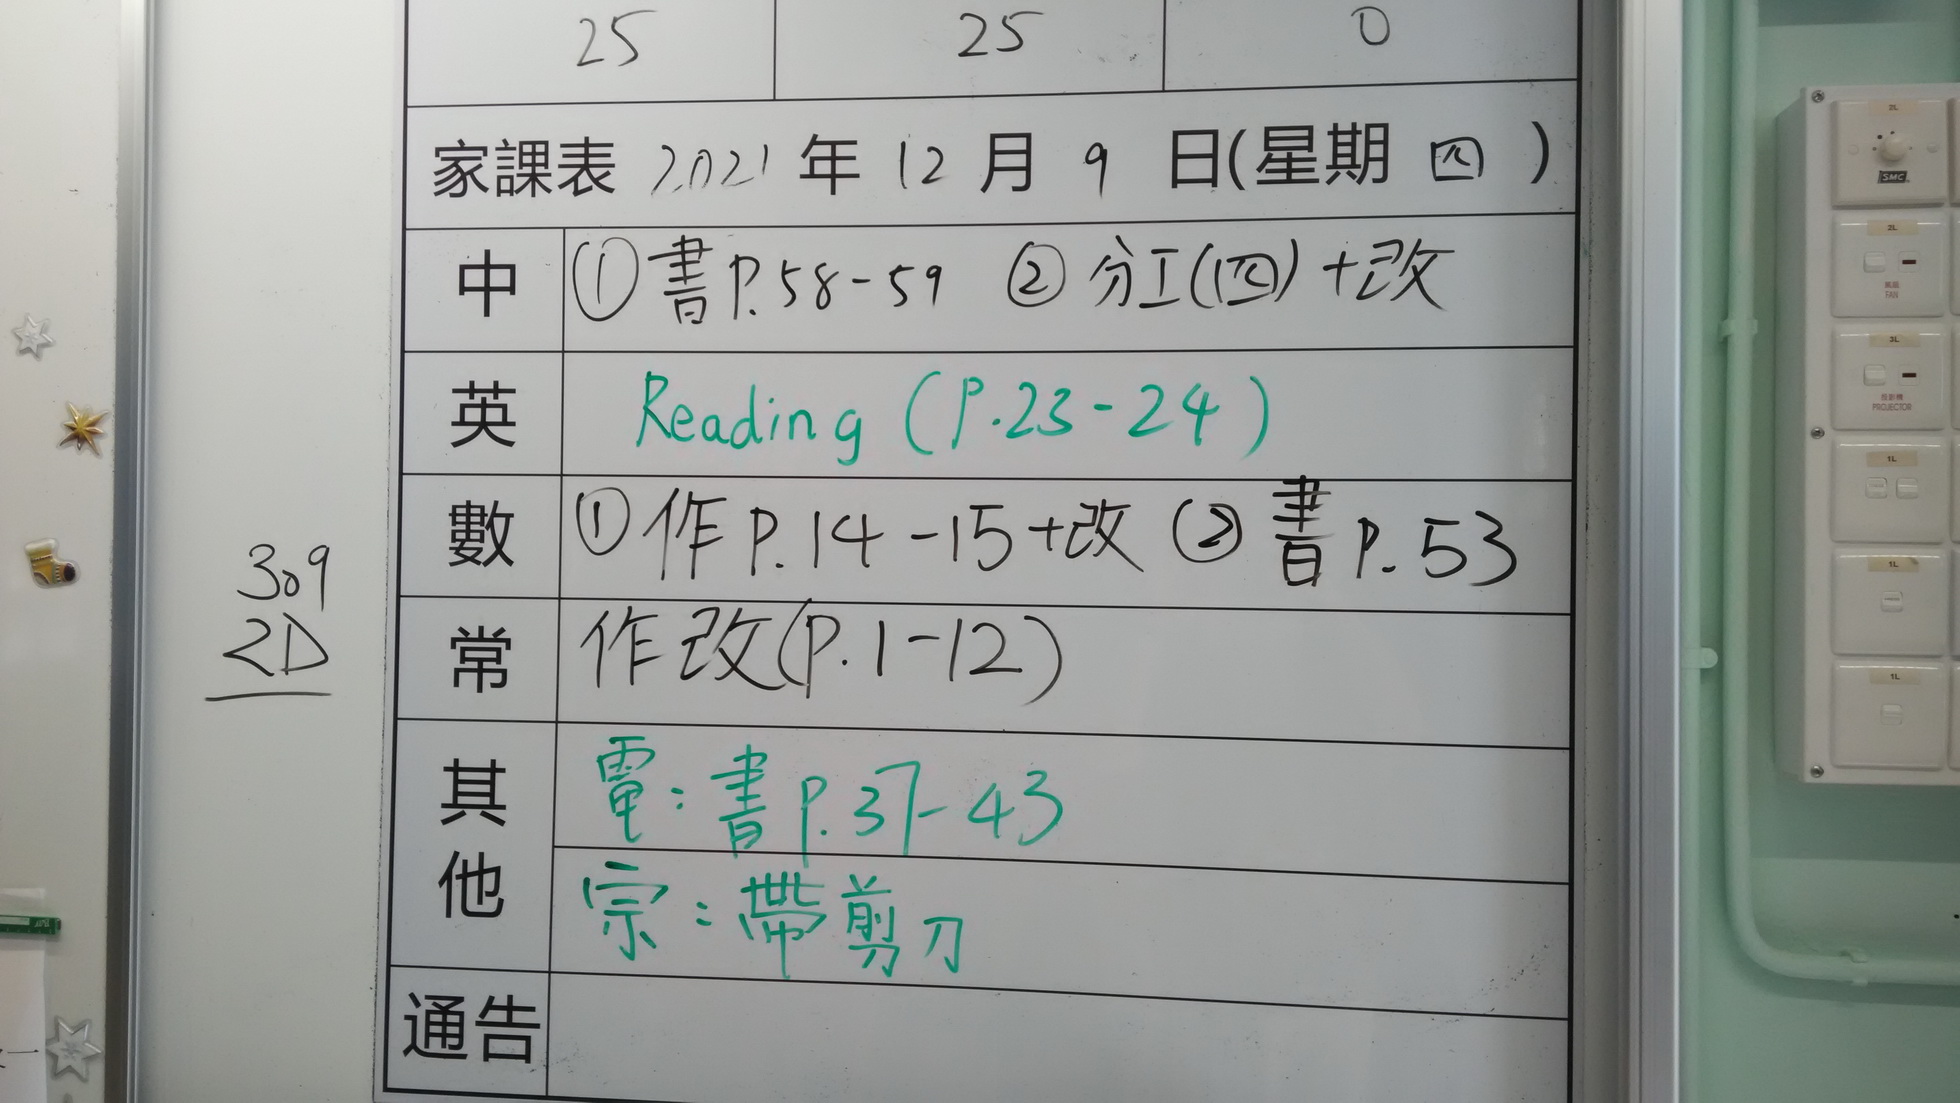 25 25 0
家課表 2021 年 12 月 9 日(星期 四 )
中 ①書P.58-59 ②分工(四)+改
英 Reading (P.23-24)
數 ①作P.14-15+改 ②書P.53
常 作改(P.1-12)
其他 電:書P.37-43
宗:帶剪刀
通告
309
2D
2L
SMC
2L
風扇
FAN
3L
投影機
PROJECTOR
1L
1L
1L